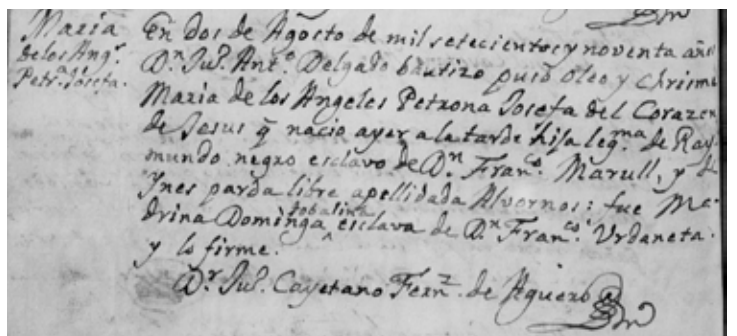 Maria
de los Ang.s
Petr.a Josefa.
En dos de Agosto de mil setecientos y noventa años
D.n Ju.n Ant.o Delgado bautizo puso oleo y chrisma
Maria de los Angeles Petrona Josefa del Corazon
de Jesus q̃ nacio ayer a la tarde hija leg.ma de Ray
mundo negro esclavo de D.n Fran.co Marull, y de
Ynes parda libre apellidada Alvornos: fue Ma-
drina Dominga tobalina esclava de D.n Fran.co Urdaneta.
y lo firme.
D.r Ju.n Cayetano Fern.z de Aguero